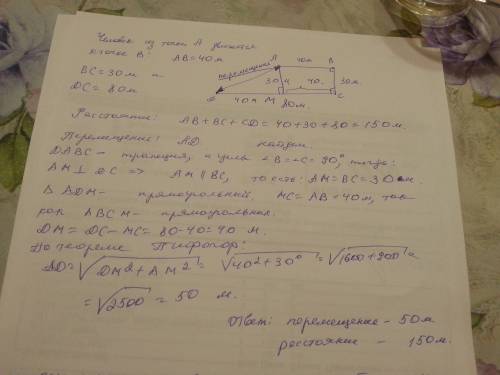 Человек из точки А движется
к точке В: АВ=40м
ВС=30м и
DC = 80м
перемещение
А 40м В
30м 40. 30м.
D 40м М С
80м.
Расстояние: АВ+ВС+CD=40+30+80=150м.
Перемещение: AD найдем.
DABC - трапеция, и углы ∠B=∠C=90°, тогда:
АМ⊥DC => AM||BC, то есть: АМ=ВС=30м.
Δ ADM - прямоугольный. МС=АВ=40м, так
как АВСМ - прямоугольник.
DM = DC - MC = 80-40=40 м.
По теореме Пифагора:
AD=√DM²+AM² = √40²+30² = √1600+900 =
= √2500 = 50 м.
Ответ: перемещение - 50м
расстояние - 150м.